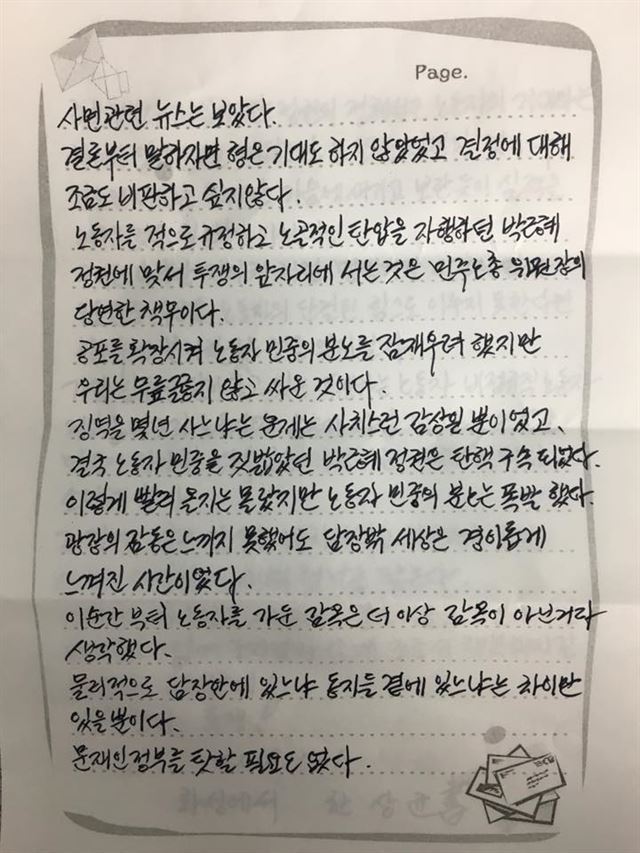 Page.
사면관련 뉴스는 보았다.
결론부터 말하자면 형은 기대도 하지 않았었고 결정에 대해
조금도 비판하고 싶지않다.
노동자를 적으로 규정하고 노골적인 탄압을 자행하던 박근혜
정권에 맞서 투쟁의 앞자리에 서는 것은 민주노총 위원장의
당연한 책무이다.
공포를 확장시켜 노동자 민중의 분노를 잠재우려 했지만
우리는 무릎꿇지 않고 싸운 것이다.
징역을 몇년 사느냐는 문제는 사치스런 감상일 뿐이었고,
결국 노동자 민중을 짓밟았던 박근혜 정권은 탄핵 구속 되었다.
이렇게 빨려 올지는 몰랐지만 노동자 민중의 분노는 폭발 했다.
광장의 감동은 느끼지 못했어도 담장밖 세상은 경이롭게
느껴진 시간이었다.
이순간 부터 노동자를 가둔 감옥은 더 이상 감옥이 아닌거라
생각했다.
물리적으로 담장안에 있느냐 동지들 곁에 있느냐는 차이만
있을뿐이다.
문재인정부를 탓할 필요도 없다.